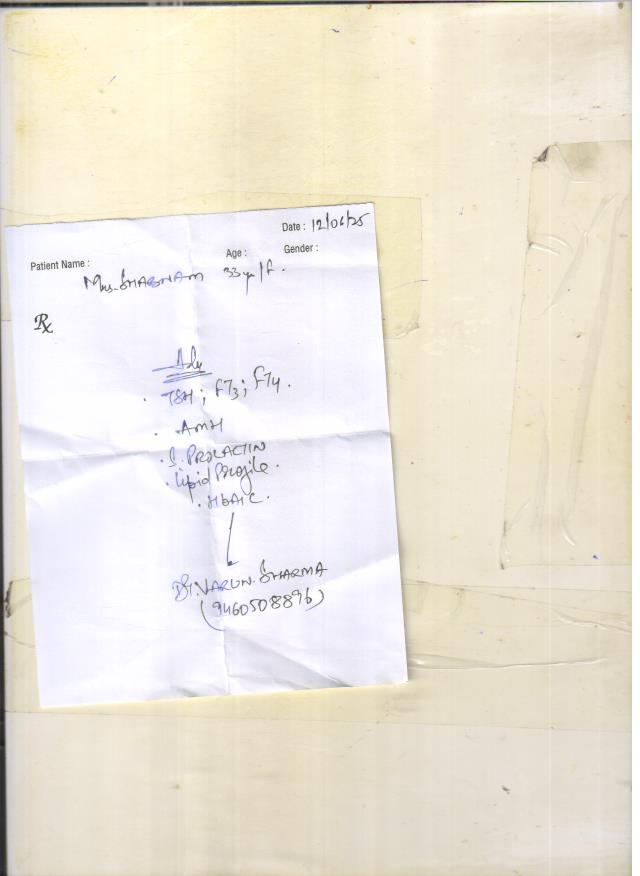 Date : 12/06/25
Patient Name : Age : Gender :
Mrs. SHABNAM 33 yr / F.
Rx
Adv
. TSH ; fT3 ; fT4 .
. AMH
. S. PROLACTIN
. lipid Profile .
. HbA1C .
Dr. VARUN. SHARMA
(9460508896)